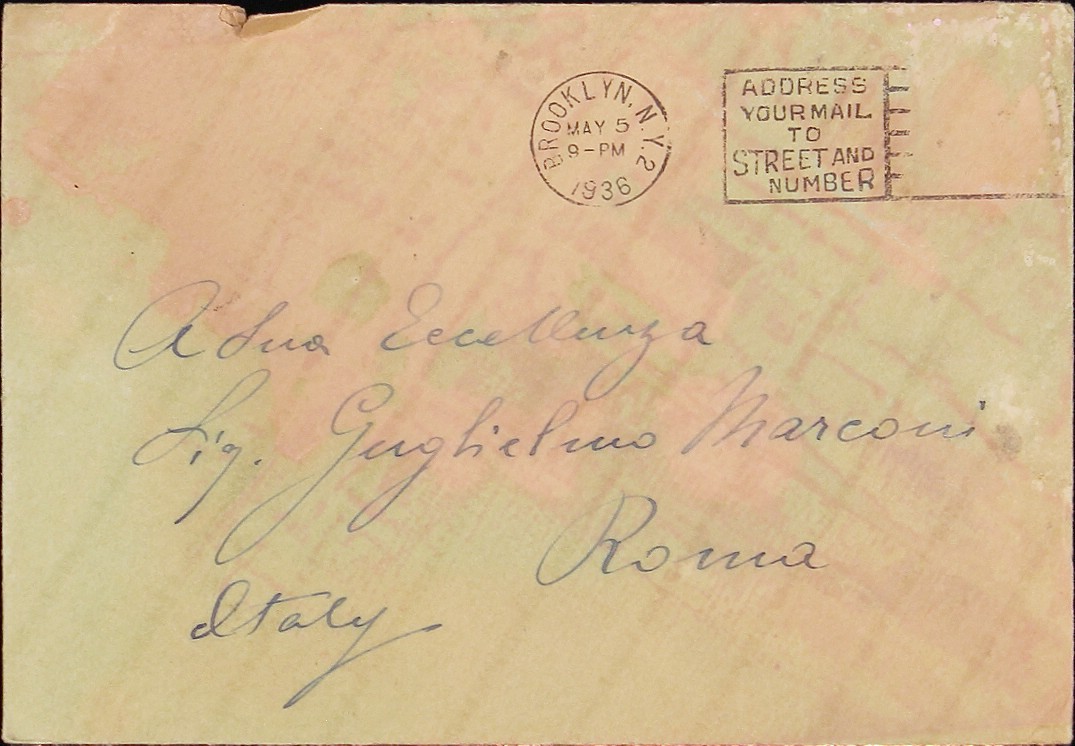 BROOKLYN, N.Y. 2
MAY 5
9-PM
1936
ADDRESS
YOUR MAIL
TO
STREET AND
NUMBER
A Sua Eccellenza
Sig. Guglielmo Marconi
Roma
Italy